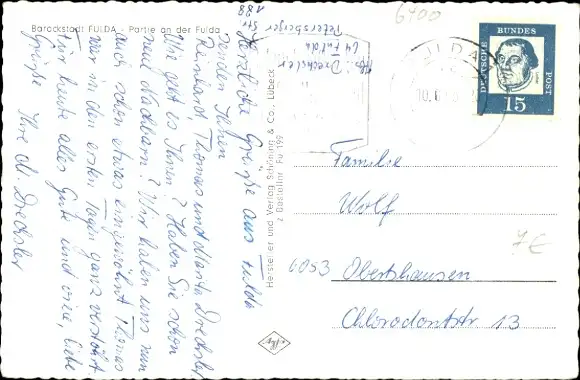 Barockstadt FULDA - Partie an der Fulda
Herzliche Grüße aus Fulda
senden Ihnen
Reinhard, Thomas und Drechsler
Wie geht es Ihnen? Haben Sie schon
neue Nachbarn? Wir haben uns nun
auch schon etwas eingewöhnt. Thomas
war in den ersten Tagen ganz verstört.
Für heute alles Gute und viele, liebe
Grüße Ihre Drechsler
Abs. Drechsler
64 Fulda
Petersberger Str.
188
Hersteller und Verlag Schöning & Co., Lübeck
6400
FULDA
DEUTSCHE
BUNDES
POST
15
Familie
Wolf
7€
6053 Obertshausen
Chlorodontstr 13